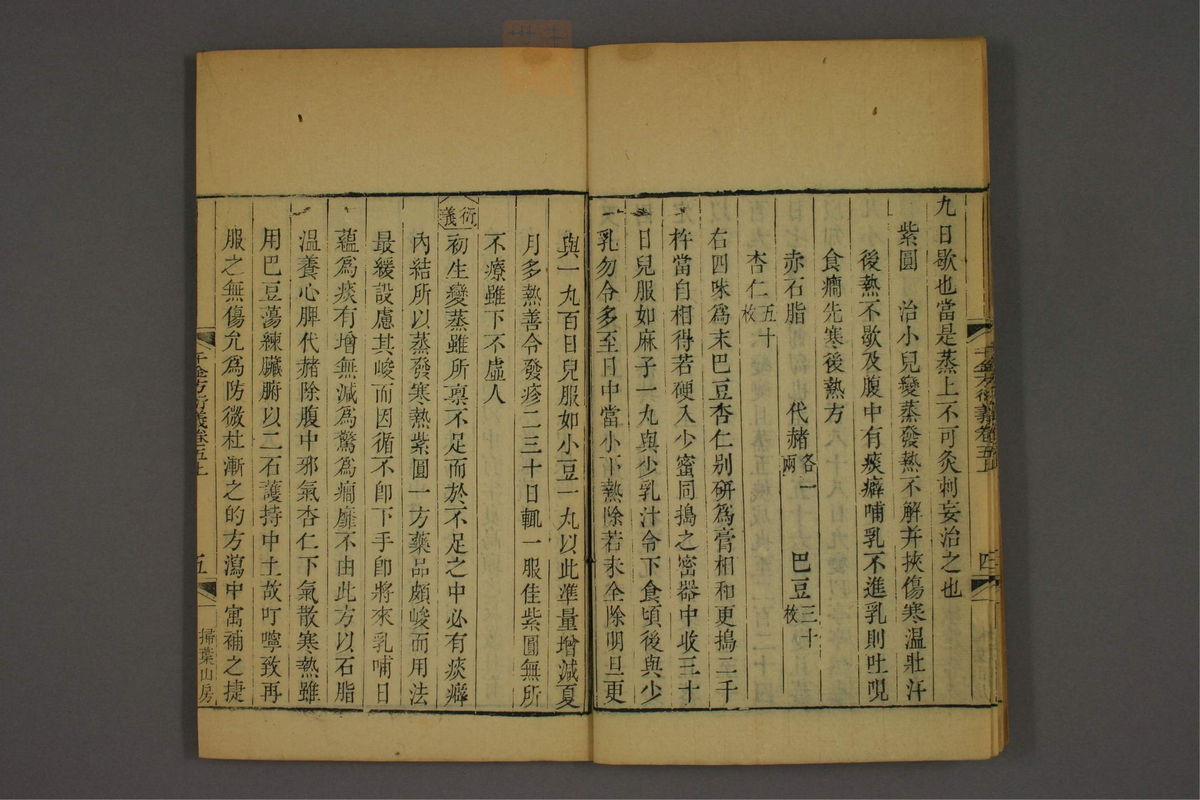 九日歇也當是蒸上不可灸刺妄治之也
紫圓　治小兒變蒸發熱不解并挾傷寒溫壯汗
後熱不歇及腹中有痰癖哺乳不進乳則吐哯
食癇先寒後熱方
赤石脂　代赭各一兩　巴豆三十枚
杏仁五十枚
右四味爲末巴豆杏仁别研爲膏相和更搗二千
杵當自相得若硬入少蜜同搗之密器中收三十
日兒服如麻子一丸與少乳汁令下食頃後與少
乳勿令多至日中當小下熱除若未全除明旦更
千金方衍義卷五上
四
與一丸百日兒服如小豆一丸以此準量增減夏
月多熱善令發疹二三十日輒一服佳紫圓無所
不療雖下不虛人
衍義
初生變蒸雖所禀不足而於不足之中必有痰癖
內結所以蒸發寒熱紫圓一方藥品頗峻而用法
最緩設慮其峻而因循不卽下手卽將來乳哺日
蘊爲痰有增無減爲驚爲癇靡不由此方以石脂
溫養心脾代赭除腹中邪氣杏仁下氣散寒熱雖
用巴豆蕩練臟腑以二石護持中土故叮嚀致再
服之無傷允爲防微杜漸之的方瀉中寓補之捷
千金方衍義卷五上
五
掃葉山房